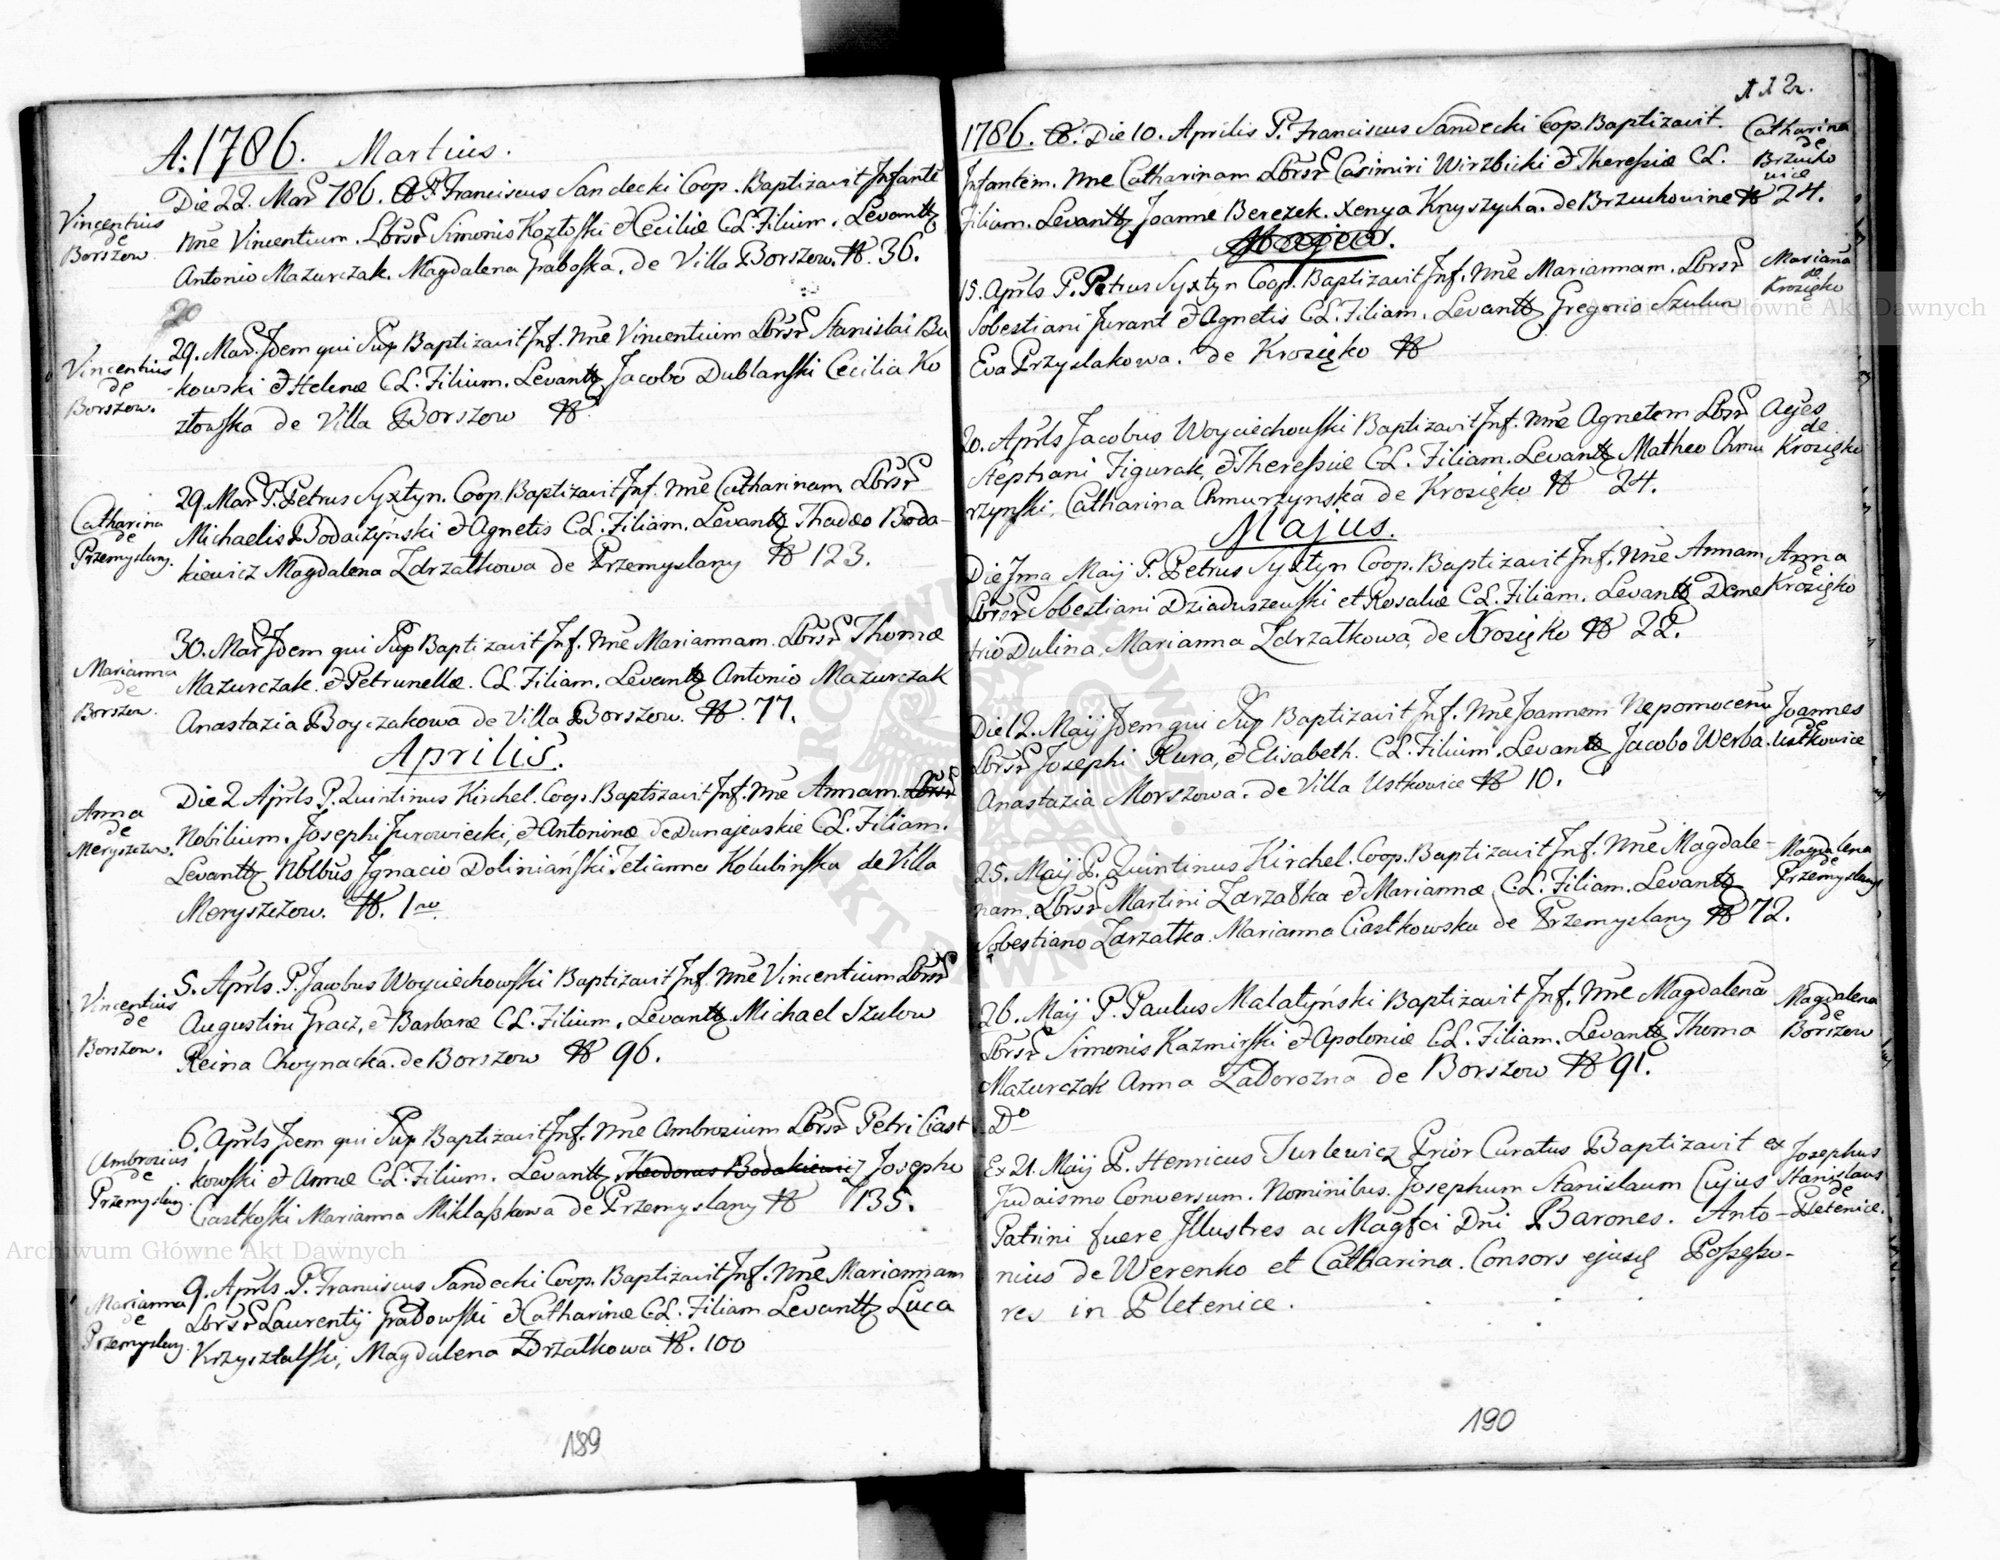 A: 1786. Martius.
Vincentius
de
Borszow.
Die 22. Mar 786. P. Franciscus Sandecki Coop. Baptizavit Infante
Nne Vincentium. Lbrsr Simonis Kozłoski & Ceciliæ C.L. Filium. Levantt
Antonio Mazurczak. Magdalena Graboska. de Villa Borszow. N. 36.
20
Vincentius
de
Borszow.
29. Mar. Idem qui Sup Baptizavit Inf. Nne Vincentium Lbrsr Stanislai Bu
kowski & Helenæ C.L. Filium. Levantt Jacobo Dublanski Cecilia Ko
złowska de Villa Borszow N
Catharina
de
Przemyslany.
29. Mar P. Petrus Syxtyn. Coop. Baptizavit Inf. Nne Catharinam Lbrsr
Michaelis Bodaczyński & Agnetis C.L. Filiam. Levantt Thadeo Boda-
kiewicz Magdalena Zdrzałkowa de Przemyslany N 123.
Marianna
de
Borszow.
30. Mar Idem qui Sup Baptizavit Inf. Nne Mariannam. Lbrsr Thomæ
Mazurczak. & Petrunellæ. C.L. Filiam. Levantt Antonio Mazurczak
Anastazia Boyczakowa de Villa Borszow. N. 77.
Aprilis.
Anna
de
Meryszczow.
Die 2 Aprls P. Quintinus Kirchel. Coop. Baptizavit Inf. Nne Annam. Lbrsr
Nobilium. Josephi Jurowiecki, & Antoninæ de Dunajewskie C.L. Filiam.
Levantt Nblbus Ignacio Doliniański. Felianna Kolubinska de Villa
Meryszczow. N. 1mo
Vincentius
de
Borszow.
5. Aprls. P. Jacobus Woyciechowski Baptizavit Inf. Nne Vincentium Lbrsr
Augustini Gracz, & Barbaræ C.L. Filium. Levantt Michael Szulow
Reina Choynacka. de Borszow N 96.
Ambrosius
de
Przemyslany.
6. Aprls Idem qui Sup Baptizavit Inf. Nne Ambrosium Lbrsr Petri Ciast
kowski & Annæ C.L. Filium. Levantt Theodorus Bodakiewicz Josepho
Ciastkoski Marianna Miklaszkowa de Przemyslany N 135.
Marianna
de
Przemyslany.
9. Aprls. P. Franciscus Sandecki Coop. Baptizavit Inf. Nne Mariannam
Lbrsr Laurentij Gradowski & Catharinæ C.L. Filiam Levantt Luca
Krzyształski, Magdalena Zdrzałkowa N. 100
189
112.
1786. Die 10. Aprilis P. Franciscus Sandecki Cop. Baptizavit.
Infantem. Nne Catharinam Lbrsr Casimiri Wirzbicki & Theressiæ C.L.
Filiam. Levantt Joanne Berezek. Xenya Knyszycha. de Brzuchowince N 24.
Catharina
de
Brzucho
wice
15. Aprls P. Petrus Syxtyn Coop. Baptizavit Inf. Nne Mariannam. Lbrsr
Sobestiani Jurant & Agnetis C.L. Filiam. Levantt Gregorio Szulun
Eva Przyslakowa. de Krosięko N
Mariana
de
Krosięko
20. Aprls Jacobus Woyciechowski Baptizavit Inf. Nne Agnetem Lbrsr
Stephani Figurak, & Theressiæ C.L. Filiam. Levantt Matheo Chmu
rzynski, Catharina Chmurzynska de Krosięko N 24.
Agēs
de
Krosięko
Majus.
Die 7ma Maij P. Petrus Syxtyn Coop. Baptizavit Inf. Nne Annam
Lbrsr Sobestiani Dziaduszewski et Rosaliæ C.L. Filiam. Levantt Deme
trio Dulina, Marianna Zdrzałkowa, de Krosięko N 22.
Anna
de
Krosięko
Die 12. Maij Idem qui Sup Baptizavit Inf. Nne Joannem Nepomocenū
Lbrsr Josephi Kura, & Elisabeth. C.L. Filium. Levantt Jacobo Werba.
Anastazia Morszowa. de Villa Ustkowice N 10.
Joannes
de
Ustkowice
25. Maij P. Quintinus Kirchel. Coop. Baptizavit Inf. Nne Magdale-
nam. Lbrsr Martini Zdrzałka & Mariannæ C.L. Filiam. Levantt
Sobestiano Zdrzałka. Marianna Ciastkowska de Przemyslany N 72.
Magdalena
de
Przemyslany
26. Maij P. Paulus Malatyński Baptizavit Inf. Nne Magdalenā
Lbrsr Simonis Kazmirski & Apoloniæ C.L. Filiam. Levantt Thoma
Mazurczak Anna Zadorozna de Borszow N 91.
Magdalena
de
Borszow
Do
Ex 21. Maij P. Henricus Turlewicz Prior Curatus Baptizavit ex
Judaismo Conversum. Nominibus. Josephum Stanislaum Cujus
Patrini fuere Illustres ac Magfci Dni Barones. Anto-
nius de Werenko et Catharina. Consors ejusq Possesso-
res in Pletenice.
Josephus
Stanislaus
de
Pletenice.
190
Archiwum Główne Akt Dawnych
Archiwum Główne Akt Dawnych